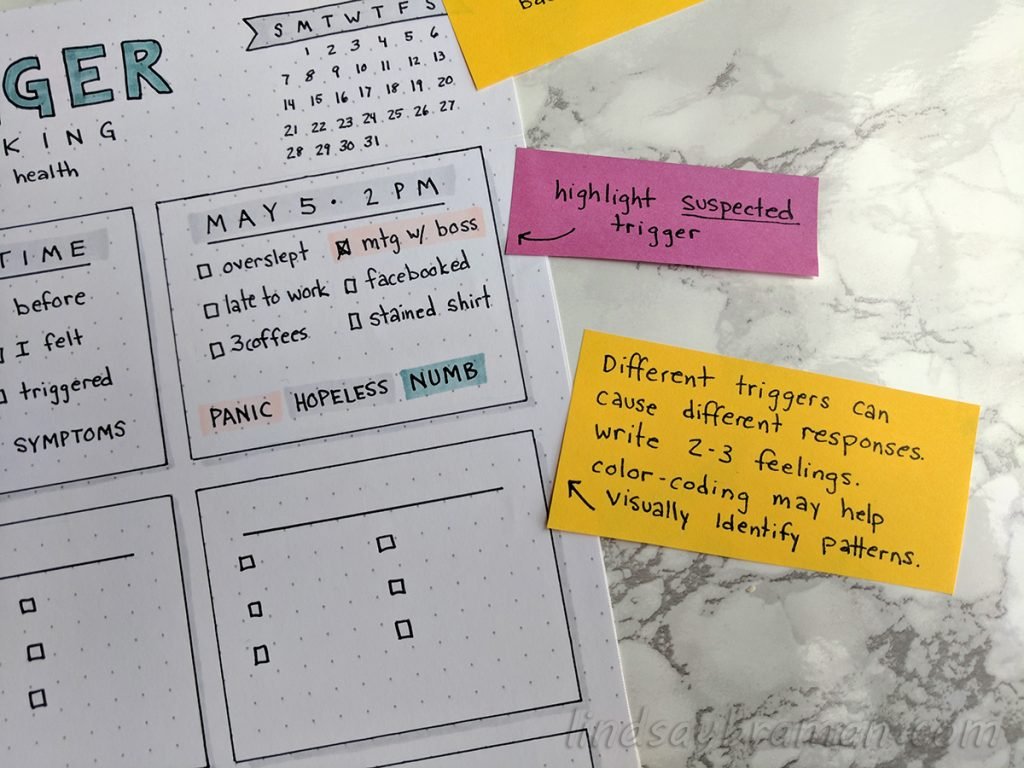 GER
KING
health
S M T W T F S
1 2 3 4 5 6
7 8 9 10 11 12 13
14 15 16 17 18 19 20
21 22 23 24 25 26 27
28 29 30 31
TIME
before
I felt
triggered
SYMPTOMS
MAY 5 · 2 PM
overslept
mtg w/ boss
late to work
facebooked
3 coffees
stained shirt
PANIC HOPELESS NUMB
highlight suspected
trigger
Different triggers can
cause different responses.
write 2-3 feelings.
color-coding may help
visually identify patterns.
lindsaybraman.com